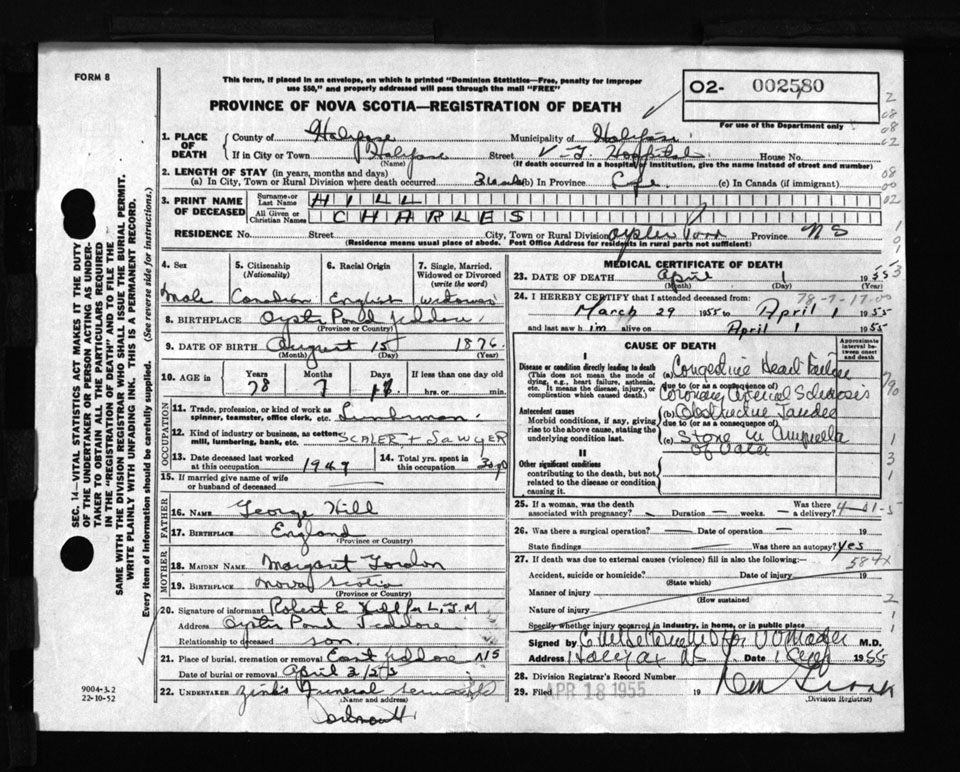 FORM 8
This form, if placed in an envelope, on which is printed "Dominion Statistics—Free, penalty for improper
use $50," and properly addressed will pass through the mail "FREE"
PROVINCE OF NOVA SCOTIA—REGISTRATION OF DEATH
O2- 002580
For use of the Department only
1. PLACE OF DEATH
County of Halifax Municipality of Halifax
If in City or Town Halifax Street V-G Hospital House No.
(Name) (If death occurred in a hospital or institution, give the name instead of street and number)
2. LENGTH OF STAY (in years, months and days)
(a) In City, Town or Rural Division where death occurred (b) In Province Life (c) In Canada (if immigrant)
3. PRINT NAME OF DECEASED
Surname or Last Name HILL
All Given or Christian Names CHARLES
RESIDENCE No. Street City, Town or Rural Division Oyster Pond Province N S
(Residence means usual place of abode. Post Office Address for residents in rural parts not sufficient)
4. Sex
Male
5. Citizenship (Nationality)
Canadian
6. Racial Origin
English
7. Single, Married, Widowed or Divorced (write the word)
Widower
8. BIRTHPLACE Oyster Pond Jeddore
(Province or Country)
9. DATE OF BIRTH August 15 1876
(Month) (Day) (Year)
10. AGE in Years Months Days If less than one day old
78 7 17 hrs. or min.
OCCUPATION
11. Trade, profession, or kind of work as spinner, teamster, office clerk, etc. Lumberman
12. Kind of industry or business, as cotton mill, lumbering, bank, etc. SCALER + SAWYER
13. Date deceased last worked at this occupation 1947
14. Total yrs. spent in this occupation 30
15. If married give name of wife or husband of deceased
FATHER
16. NAME George Hill
17. BIRTHPLACE England
(Province or Country)
MOTHER
18. MAIDEN NAME Margaret Gordon
19. BIRTHPLACE Nova Scotia
(Province or Country)
20. Signature of informant Robert E. Hill for L.J.M
Address Oyster Pond Jeddore
Relationship to deceased son
21. Place of burial, cremation or removal East Jeddore NS
Date of burial or removal April 2/55
22. UNDERTAKER Zink's Funeral
(Name and address)
Dartmouth
MEDICAL CERTIFICATE OF DEATH
23. DATE OF DEATH April 1 1955
(Month) (Day) (Year)
78-7-17-00
24. I HEREBY CERTIFY that I attended deceased from:
March 29 1955 to April 1 1955
and last saw him alive on April 1 1955
CAUSE OF DEATH
Approximate interval between onset and death
I
Disease or condition directly leading to death (This does not mean the mode of dying, e.g., heart failure, asthenia, etc. It means the disease, injury, or complication which caused death.)
(a) Congestive Heart Failure
due to (or as a consequence of)
Coronary Arterial Sclerosis
Antecedent causes
Morbid conditions, if any, giving rise to the above cause, stating the underlying condition last.
(b) Obstructive Jaundice
due to (or as a consequence of)
(c) Stone in Ampulla
of Vater
II
Other significant conditions
contributing to the death, but not related to the disease or condition causing it.
25. If a woman, was the death associated with pregnancy? Duration weeks. Was there a delivery?
26. Was there a surgical operation? Date of operation 19
State findings Was there an autopsy? Yes
27. If death was due to external causes (violence) fill in also the following:
584X
Accident, suicide or homicide? Date of injury 19
(State which)
Manner of injury
(How sustained
Nature of injury
Specify whether injury occurred in industry, in home, or in public place
Signed by for M.D.
Address Halifax NS Date 1955
28. Division Registrar's Record Number
29. Filed APR 18 1955 19
(Division Registrar)
SEC. 14—VITAL STATISTICS ACT MAKES IT THE DUTY
OF THE UNDERTAKER OR PERSON ACTING AS UNDER-
TAKER TO OBTAIN ALL THE PARTICULARS REQUIRED
IN THE "REGISTRATION OF DEATH" AND TO FILE THE
SAME WITH THE DIVISION REGISTRAR WHO SHALL ISSUE THE BURIAL PERMIT.
WRITE PLAINLY WITH UNFADING INK. THIS IS A PERMANENT RECORD.
Every item of information should be carefully supplied. (See reverse side for instructions.)
9004-3.2
22-10-52